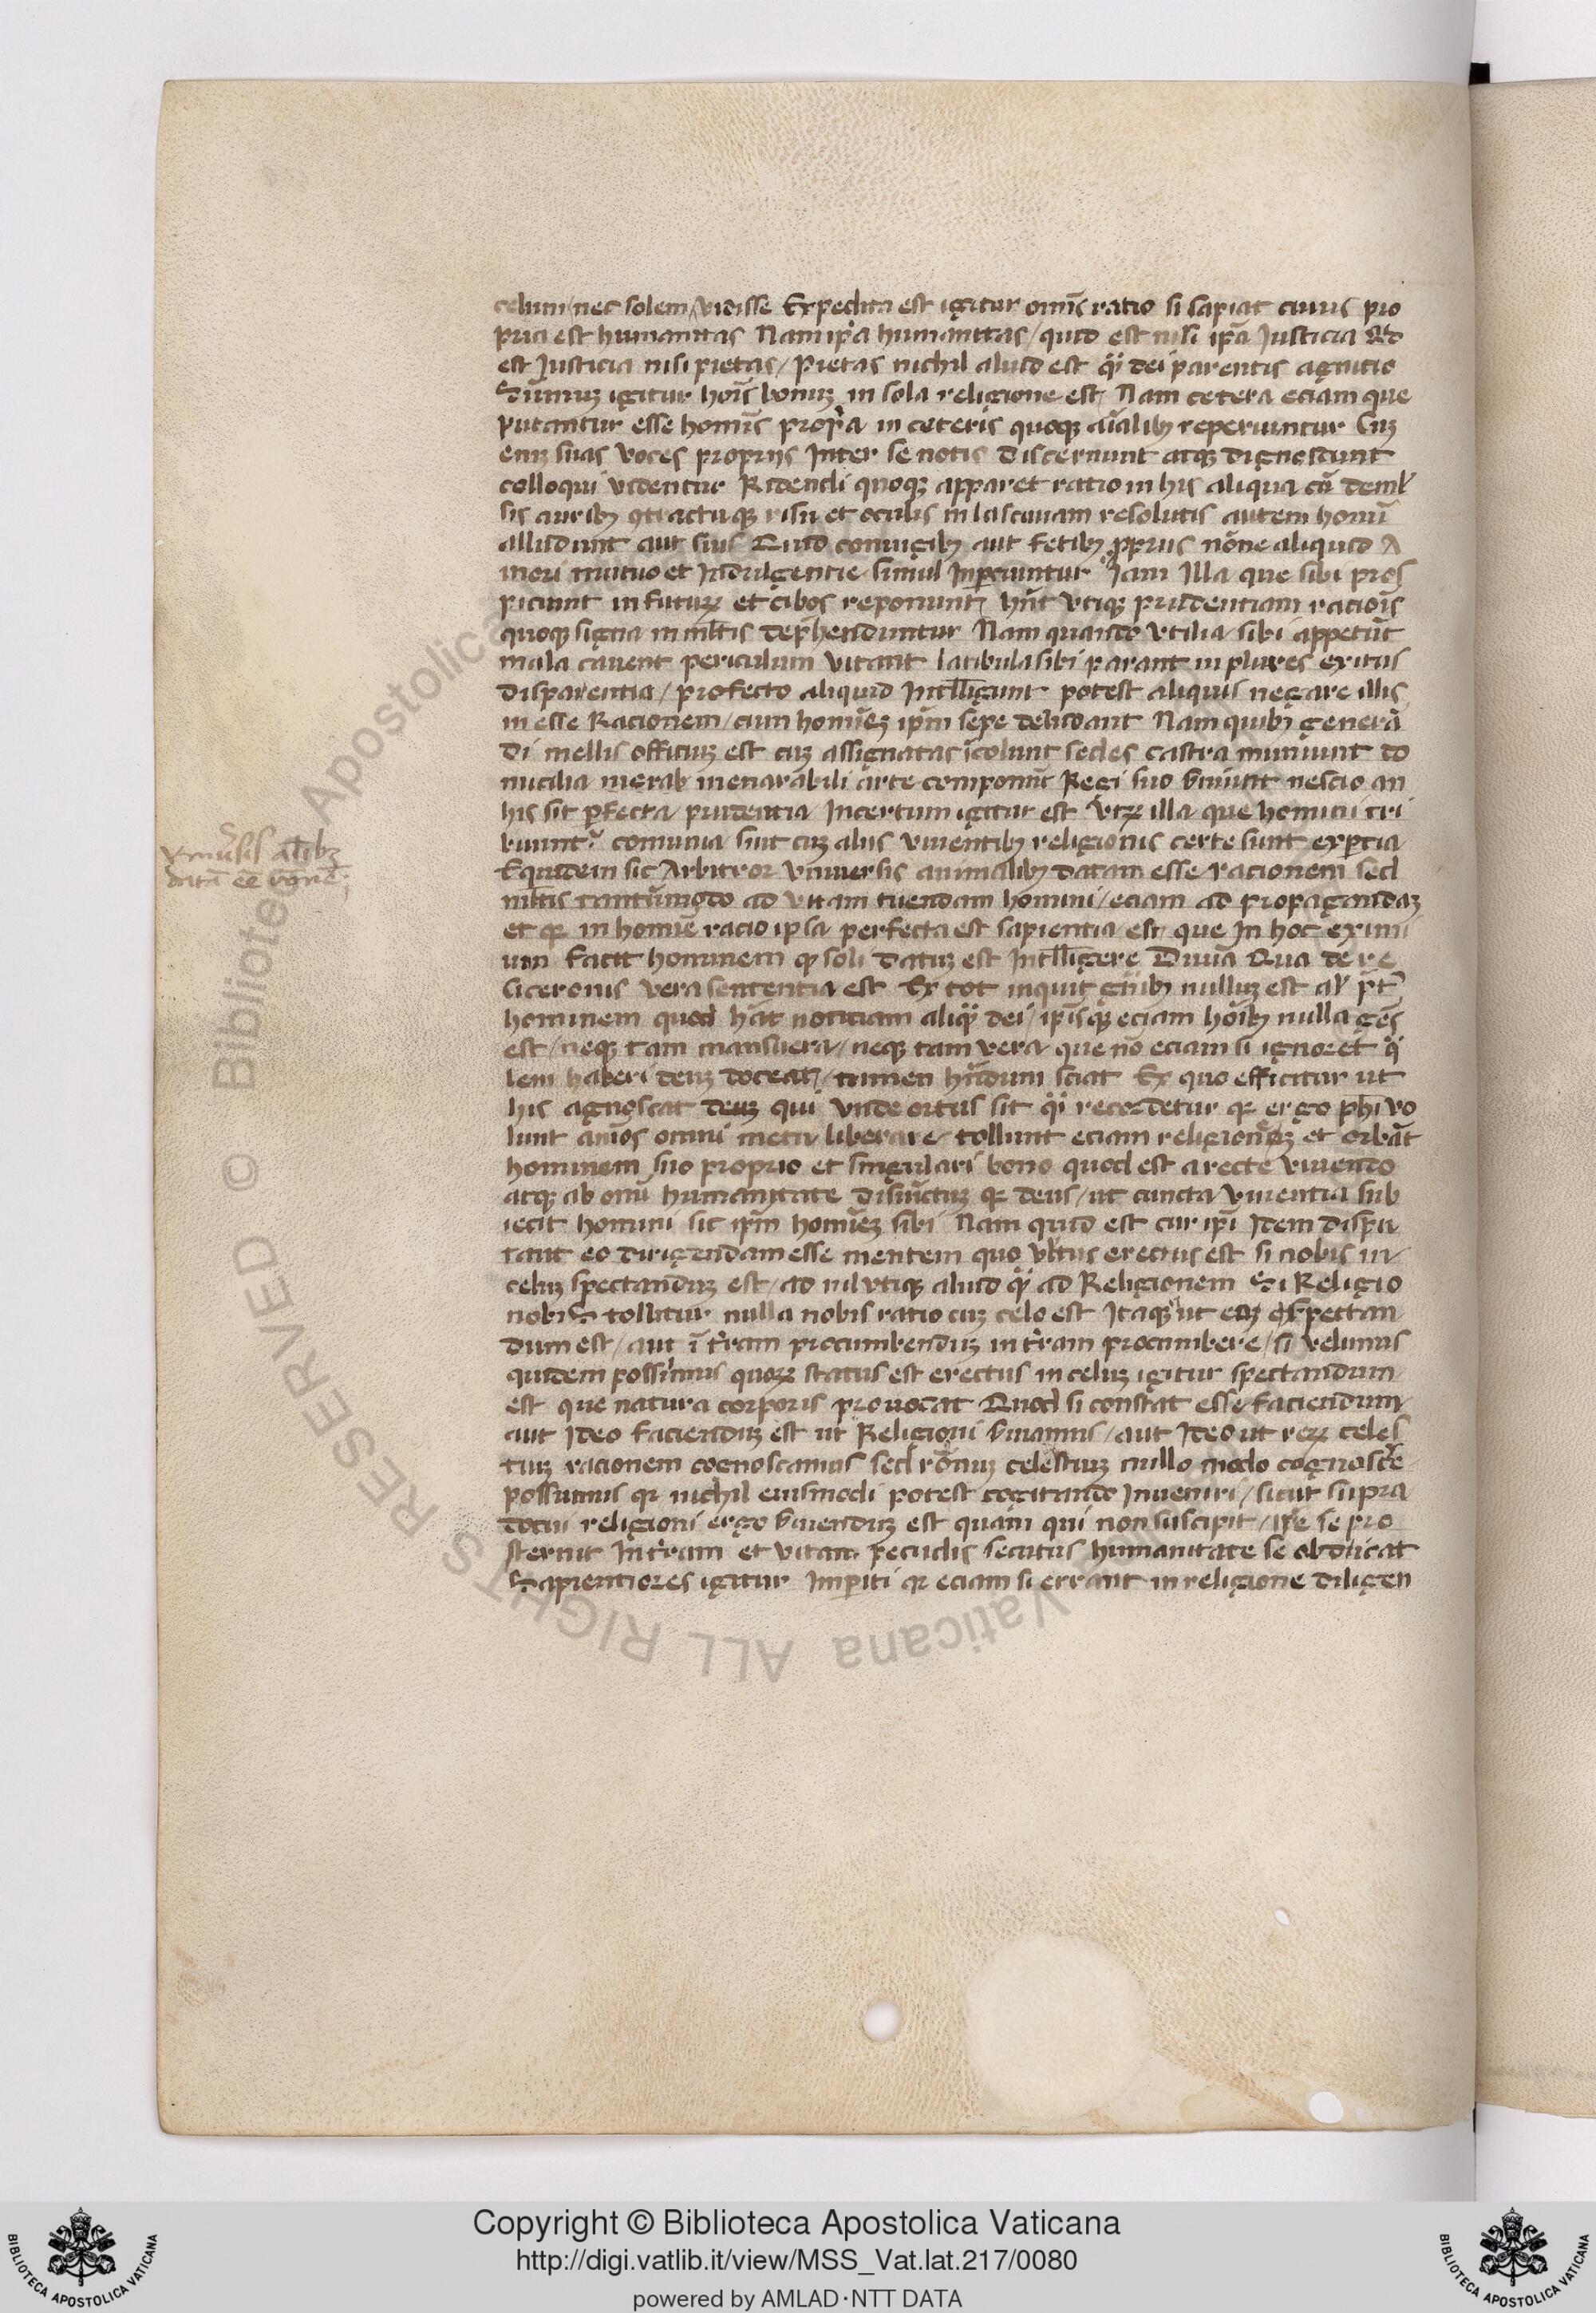 celum / nec solem / vidisse Expedita est igitur om̄is ratio si sapiat cuius pro
pria est humanitas Nam ip̄a humanitas / quid est nisi ip̄a Justicia Qd
est Justicia nisi pietas / Pietas nichil aliud est q̈ dei parentis agnitio
Sūmuȝ igitur hoīs bonuȝ in sola religione est Nam cetera eciam que
putantur esse homīs propⁱa in ceteris quoqȝ aīalibȝ reperiuntur Cuȝ
enīȝ suas voces proprijs Inter se notis discernunt atqȝ dignoscunt
colloqui videntur Ridendi quoqȝ apparet ratio in his aliqua cū deml̄
sis auribȝ ɔtractisqȝ risu et oculis in lasciuiam resolutis autem homī
alludunt aut suis Quid coniugibȝ aut fetibȝ p̱prijs nōne aliquid A
mori mutuo et Indulgentie simul Inpciuntur Jam Illa que sibi pros
piciunt in futurꝝ et cibos reponunt / hn̄t vtiqȝ prudentiam racioīs
quoqȝ signa in ml̄tis dep̄henduntur Nam quando vtilia sibi appetūt
mala cauent periculum vitant latibula sibi parant in plures exitus
disparentia / profecto aliquid Intelligunt potest aliquis negare illis
in esse Racionem / cum homīeȝ ip̄m sepe deludant Nam quibȝ generā
di mellis officiuȝ est cuȝ assignatas īcolunt sedes castra muniunt do
micilia inenarabili arte componūt Regi suo seruiunt nescio an
his sit p̱fecta prudentia Incertum igitur est vtꝝ illa que homini tri
buunt᷑ comunia sint cuȝ alijs viuentibȝ religionis certe sunt exp̱tia
Equidem sic Arbitror vniuersis animalibȝ datam esse racionem sed
ml̄tis tantūmōdo ad vitam tuendam homini / eciam ad propagandaȝ
et qꝛ in homīe racio ipsa perfecta est sapientia est que In hoc eximi
um facit hominem qꝫ soli datuȝ est Intelligere Diuīa Qua de re
Ciceronis vera sententia est Ex tot inquit gn̄ibȝ nulluȝ est al̄ p̄t
hominem quod hāt notitiam aliq̈ dei / ip̄isqȝ eciam hoībȝ nulla gēs
est / neqȝ tam mansueta / neqȝ tam vera que nō eciam si ignoret q̄
lem haberi deuȝ doceat / tamen hn̄dum sciat Ex quo efficitur ut
his agnoscat deuȝ qui vnde ortus sit q̈ recordetur qꝛ ergo ph̄i vo
lunt aīos omni metu liberare / tollunt eciam religionēȝ et orbāt
hominem suo proprio et singulari bono quod est a recte viuendo
atqȝ ab omī humanitate disiūctuȝ qꝛ deus / ut cuncta viuentia sub
iecit homini sic ip̄m homīeȝ sibi Nam quid est cur ip̄i Idem dispu
tant eo dirigendam esse mentem quo vl̄tus erectus est si nobis in
celuȝ spectanduȝ est / ad nil vtiqȝ aliud q̈ ad Religionem Si Religio
nobis tollitur nulla nobis ratio cuȝ celo est Itaqȝ ut eȝ expectan
dum est / aut ī tr̄am procumbenduȝ in tr̄am procumbere / si velimus
quidem possimus quoꝝ status est erectus in celuȝ igitur spectandum
est que natura corporis prouocat Quod si constat esse faciendum
aut Ideo faciendūȝ est ut Religioni seruiamus / aut Ideo ut reꝝ celes
tiuȝ racionem cognoscamus sed rōneȝ celestiuȝ nullo modo cognosce
possumus qꝛ nichil eiusmodi potest cogitando Inueniri / sicut supra
docui religioni ergo seruienduȝ est quam qui non suscipit / ip̄e se pro
sternit In tr̄am et vitam pecudis secutus humanitate se abdicat
Sapientiores igitur Imp̱iti qꝛ eciam si errant in religione diligen
vniūsis al̄ibȝ
datā eē rōnē
Copyright © Biblioteca Apostolica Vaticana
http://digi.vatlib.it/view/MSS_Vat.lat.217/0080
powered by AMLAD·NTT DATA